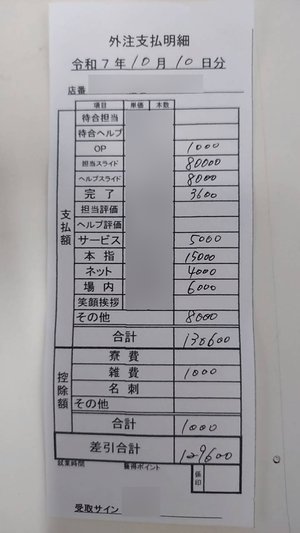 外注支払明細
令和7年10月10日分
店番
項目 単価 本数
支払額
待合担当
待合ヘルプ
OP 1000
担当スライド 80000
ヘルプスライド 8000
完了 3600
担当評価
ヘルプ評価
サービス 5000
本指 15000
ネット 4000
場内 6000
笑顔挨拶
その他 8000
合計 130600
控除額
寮費
雑費 1000
名刺
その他
合計 1000
差引合計 129600
就業時間 獲得ポイント 係印
受取サイン